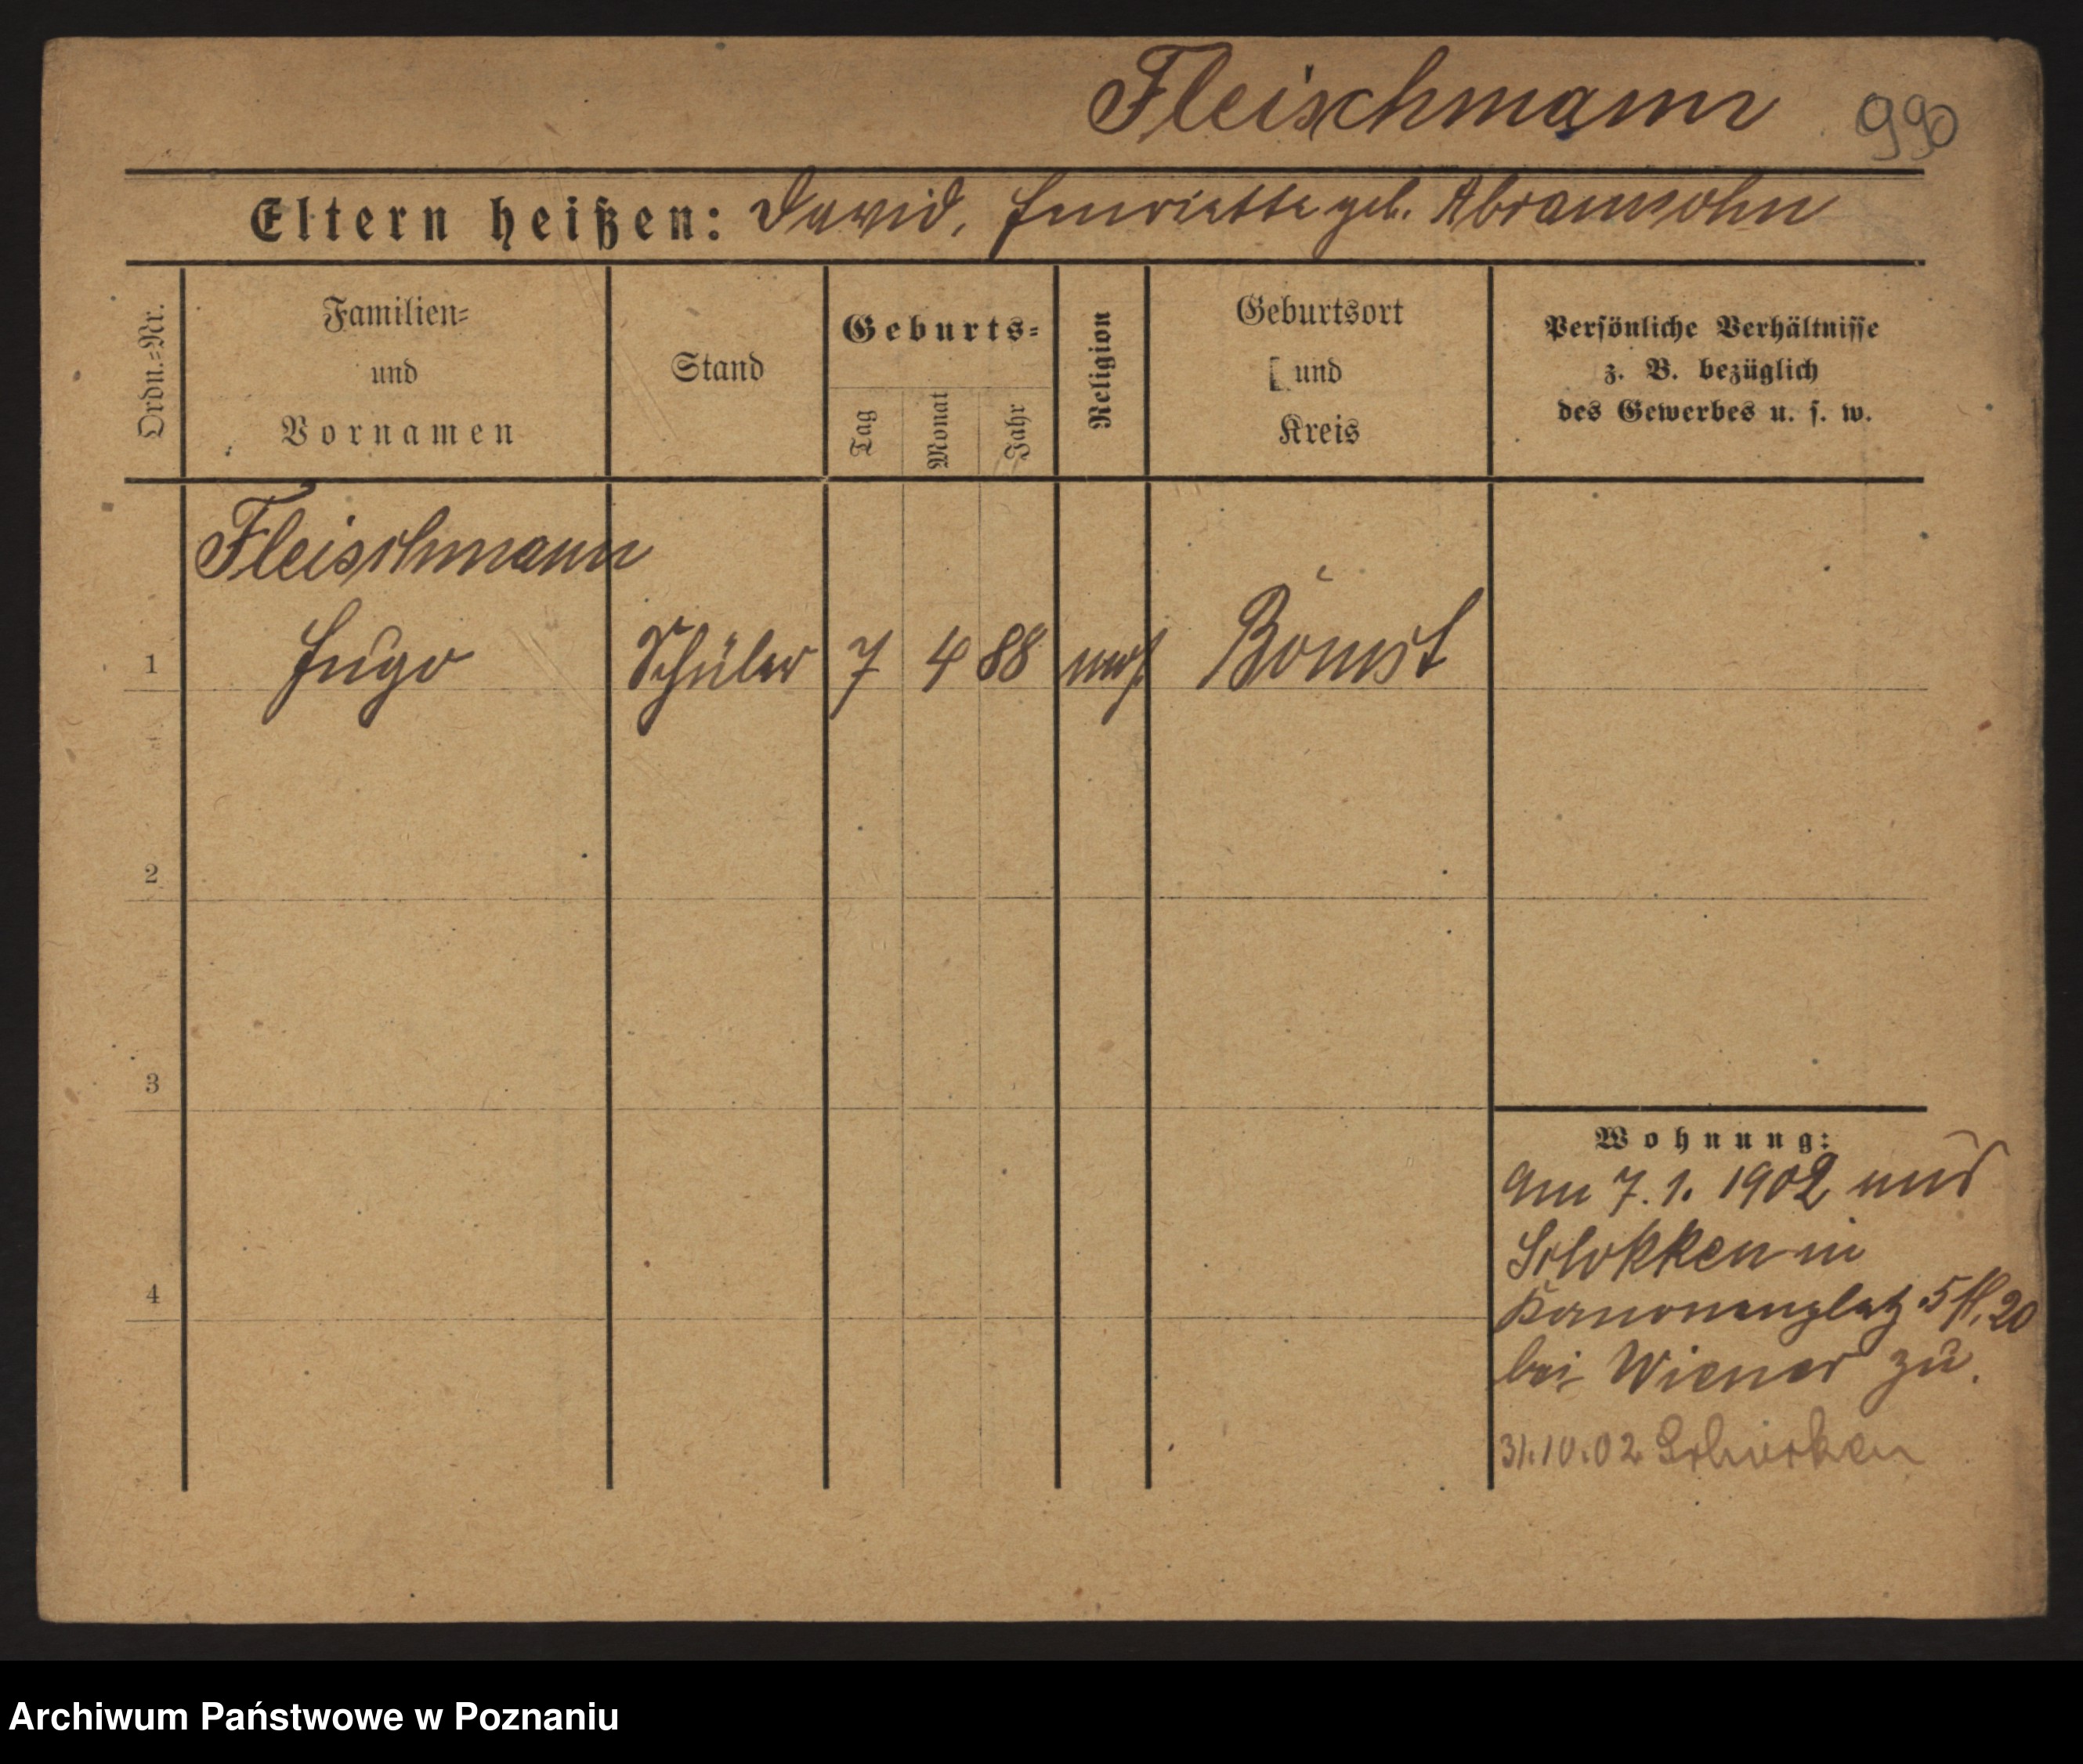 Fleischmann 990
Eltern heißen: David, Henriette geb. Abramsohn
Ordn.=Nr.
Familien=
und
Vornamen
Stand
Geburts=
Tag
Monat
Jahr
Religion
Geburtsort
und
Kreis
Persönliche Verhältnisse
z. B. bezüglich
des Gewerbes u. s. w.
Fleischmann
1 Hugo Schüler 7 4 88 mos. Bomst
2
3
4
Wohnung:
Am 7.1.1902 aus
Schokken in
Kanonenplatz 5 II, 20
bei Wiener zu.
31.10.02 Schocken
Archiwum Państwowe w Poznaniu